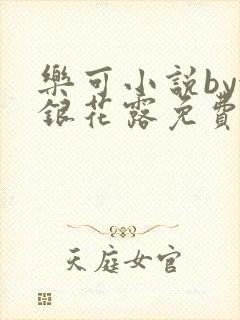 樂可小説by
銀花露免費
天庭女官